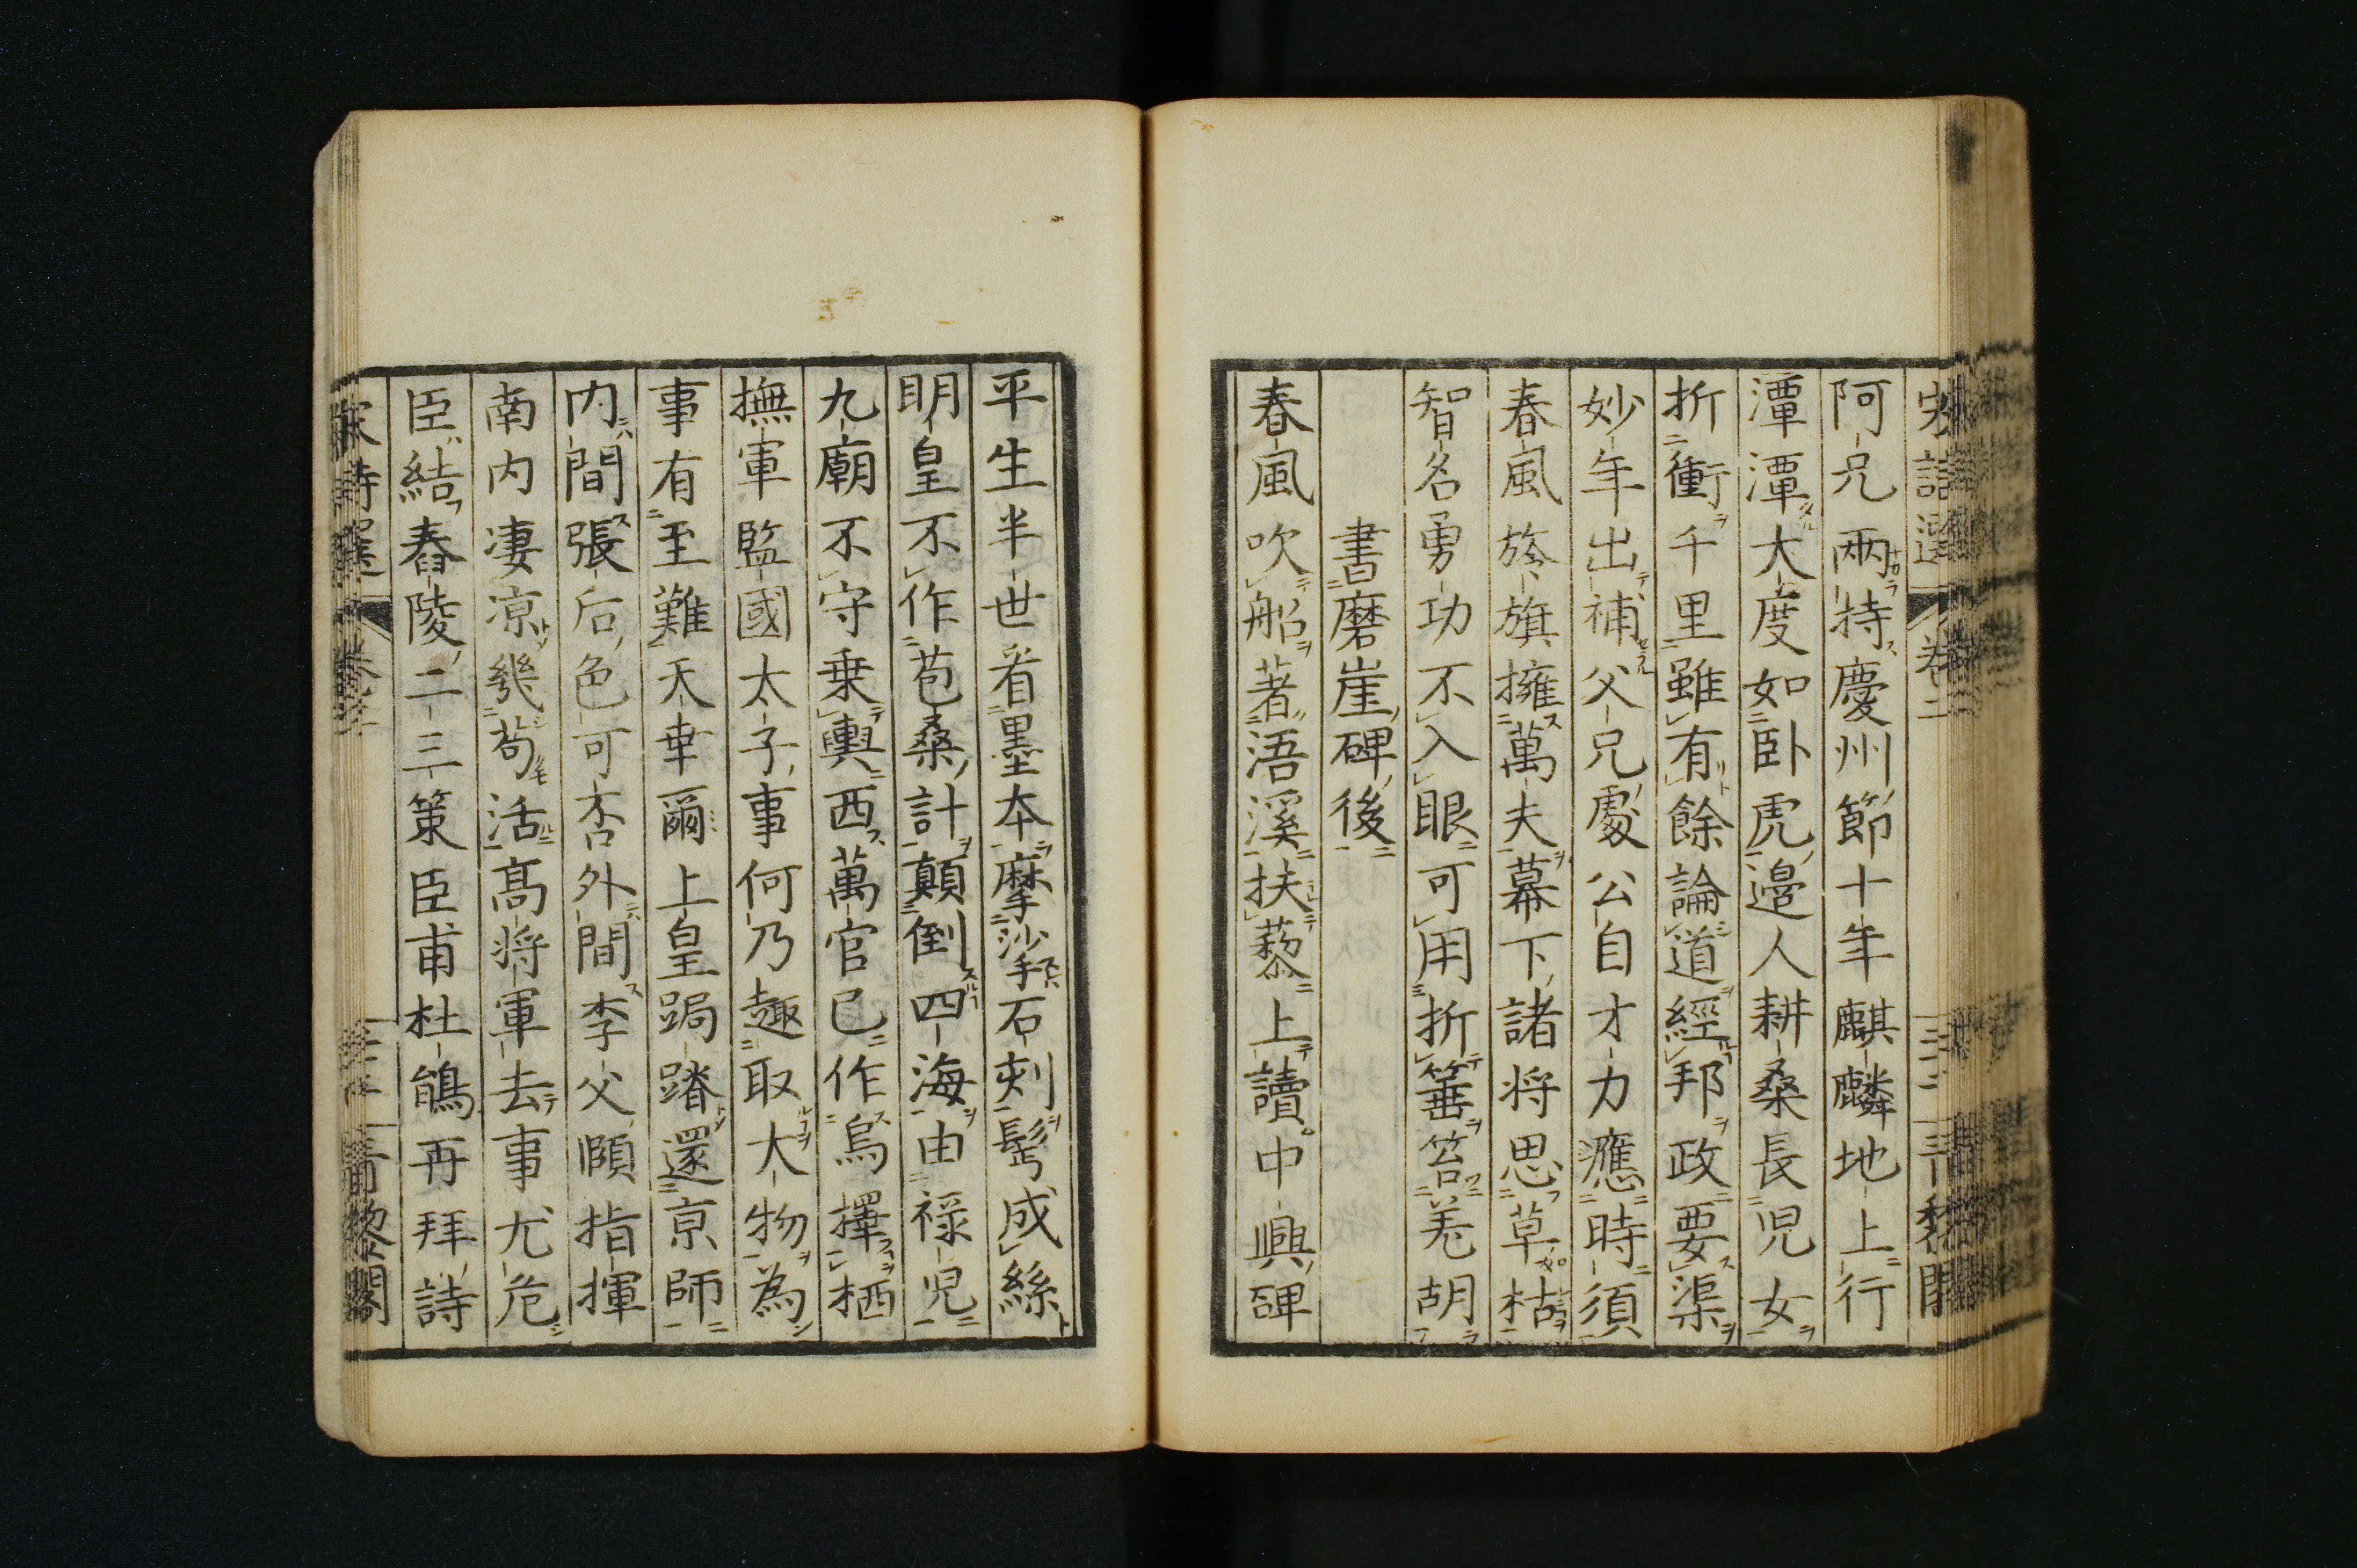 宋詩選 卷二
阿兄兩持慶州節十年麒麟地上行
潭潭大度如卧虎邉人耕桑長児女
折衝千里雖有餘論道經邦政要渠
妙年出補父兄處公自才力應時須
春風旍旗擁萬夫幕下諸将思草枯
智名勇功不入眼可用折箠笞羌胡
書磨崖碑後
春風吹船著浯溪扶藜上讀中興碑
平生半世看墨本摩挲石刻鬂成絲
明皇不作苞桑計顛倒四海由禄児
九廟不守乗輿西萬官已作烏擇栖
撫軍監國太子事何乃趣取大物為
事有至難天幸爾上皇跼蹐還京師
内間張后色可否外間李父頤指揮
南内凄凉幾苟活髙将軍去事尤危
臣結舂陵二三策臣甫杜鵑再拜詩
宋詩選 青藜閣